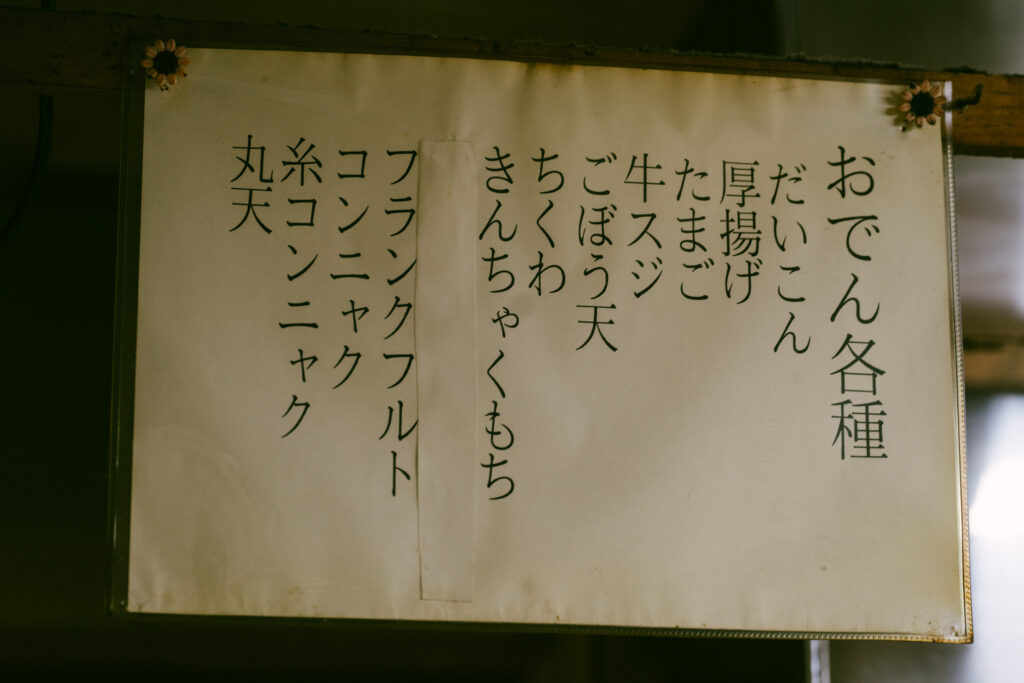 おでん各種
だいこん
厚揚げ
たまご
牛スジ
ごぼう天
ちくわ
きんちゃくもち
フランクフルト
コンニャク
糸コンニャク
丸天